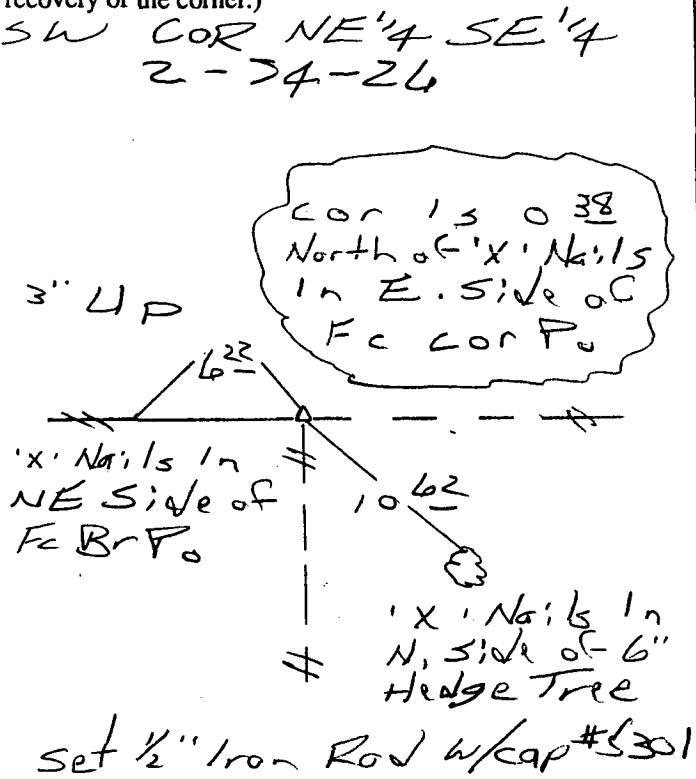 recovery of the corner.)
SW COR NE 1/4 SE 1/4
2-34-26
cor is 0 38
North of 'X' Nails
In E. Side of
Fc cor Po
3" Up
6 22
'X' Nails In
NE Side of
Fc Br Po
10 62
'X' Nails In
N. Side of 6"
Hedge Tree
set 1/2" Iron Rod w/cap #5301